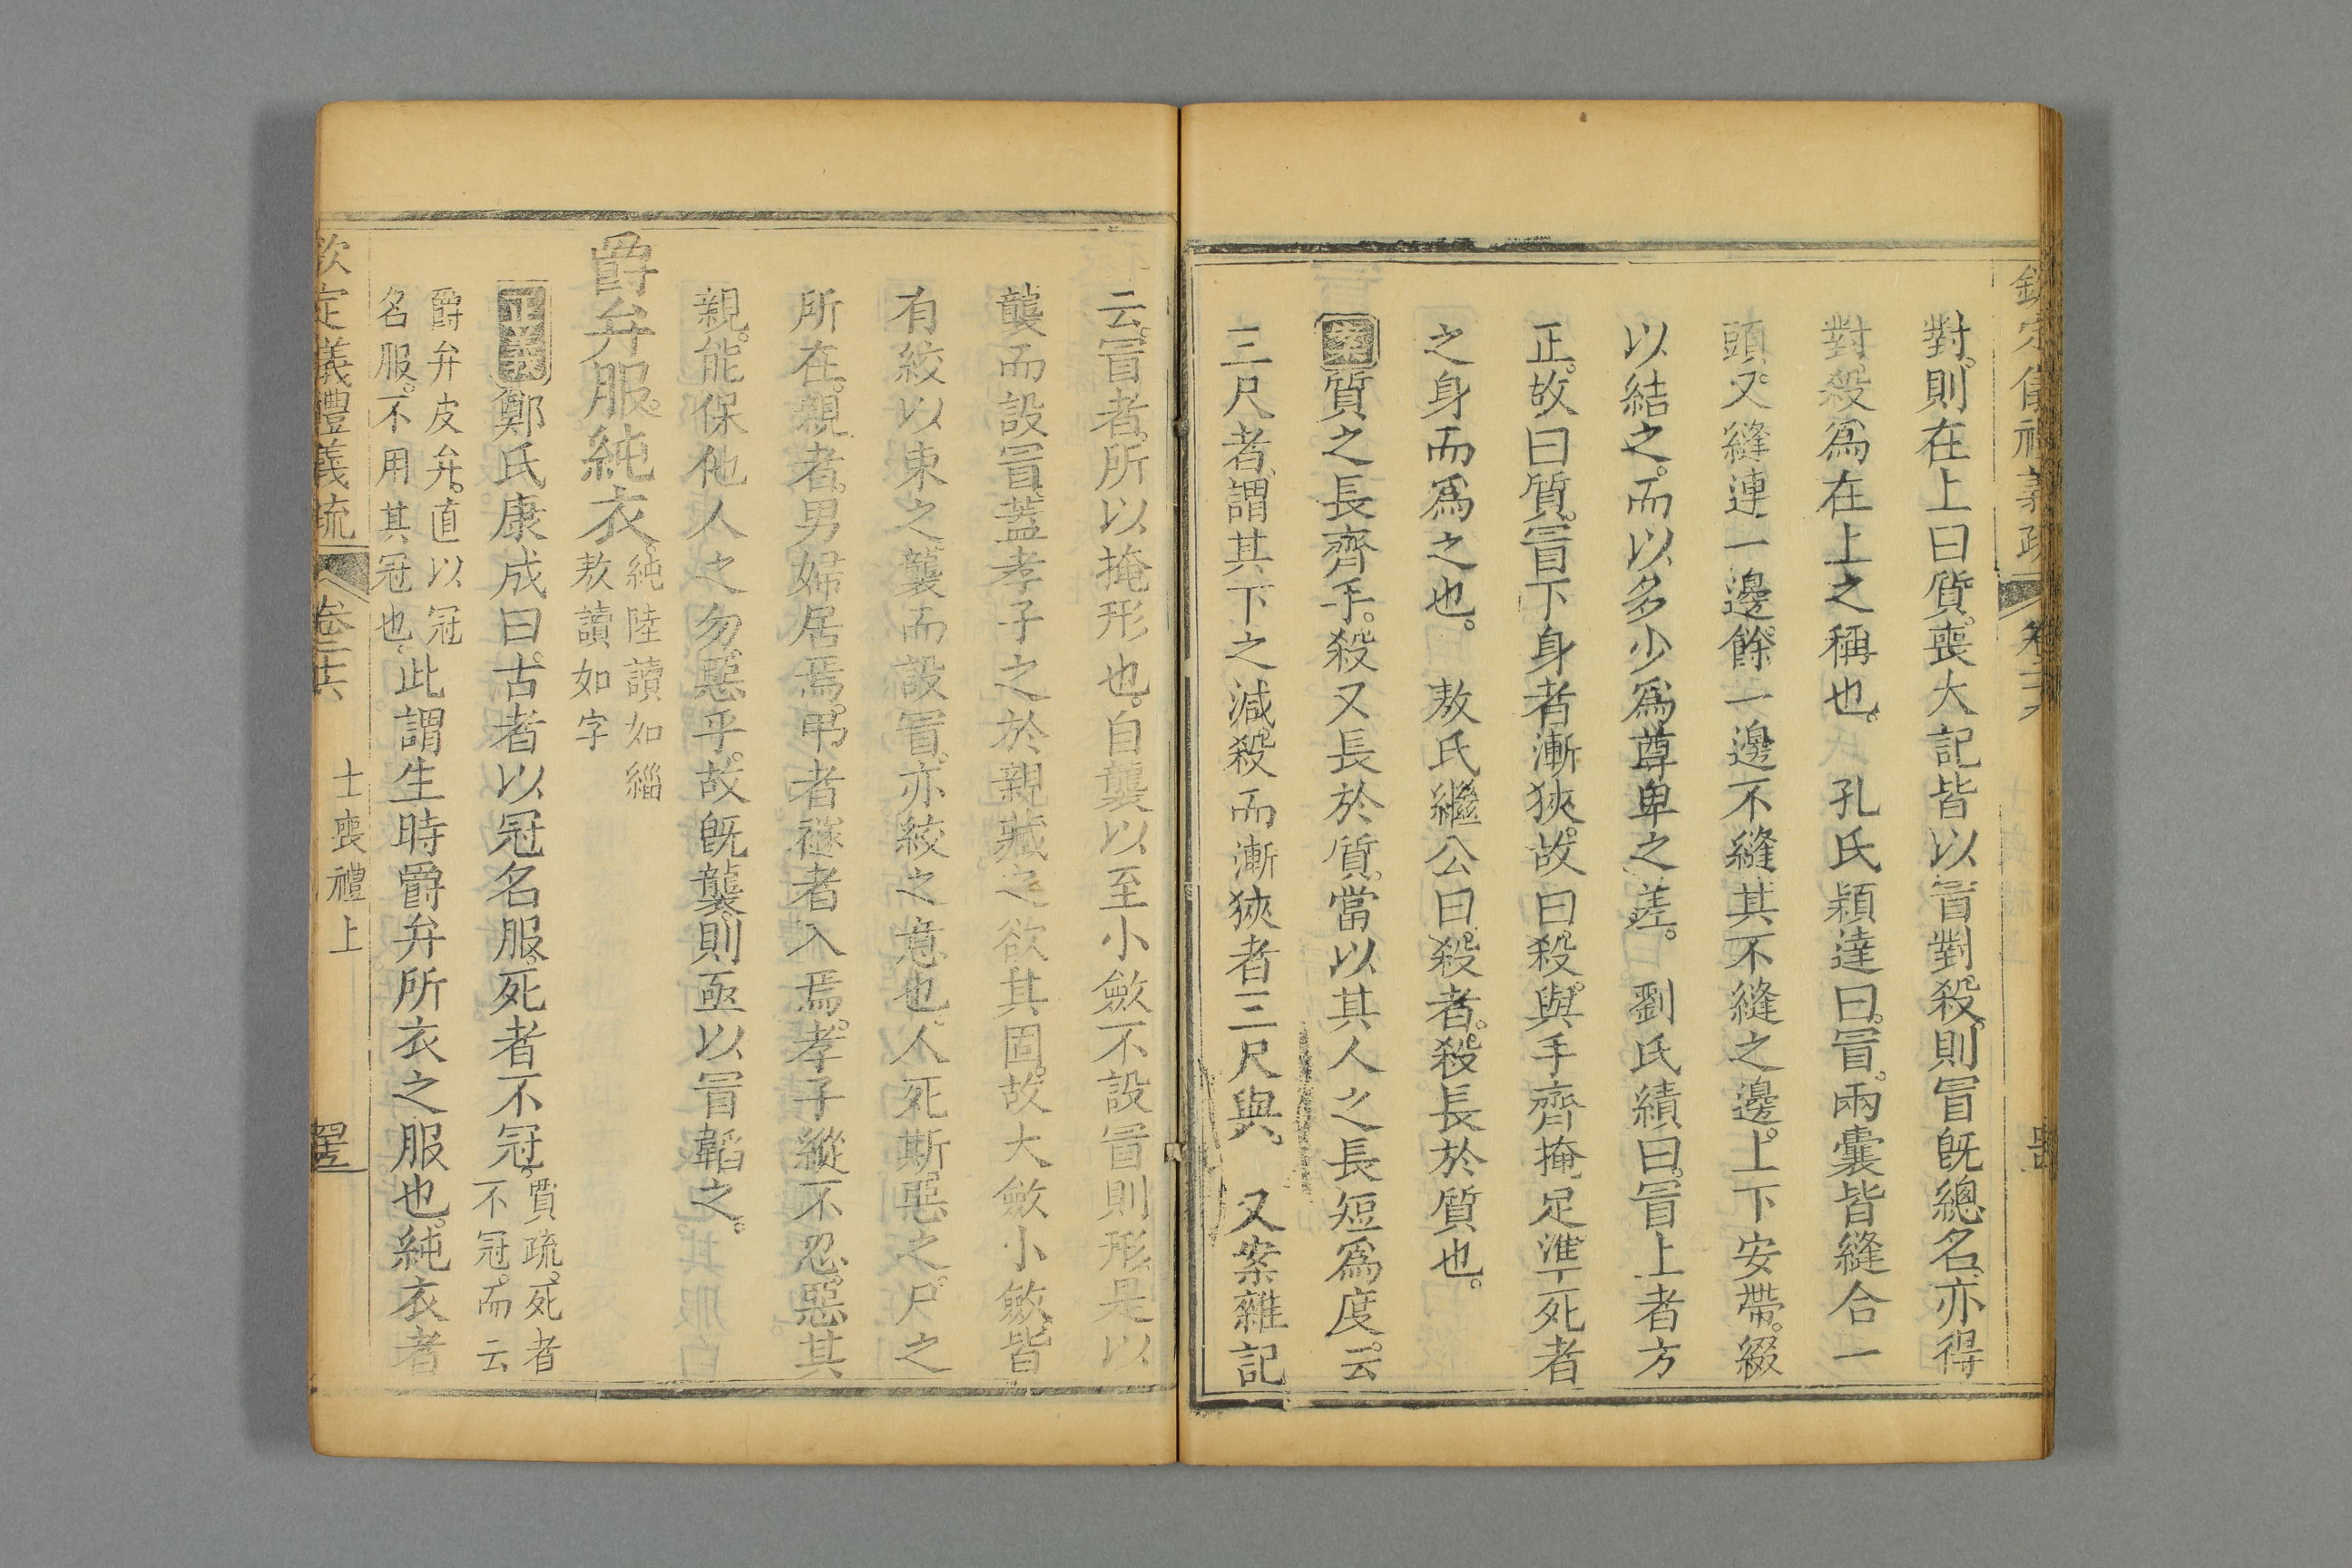 欽定儀禮義疏 卷二十六
對。則在上曰質。喪大記皆以冒對殺。則冒旣總名。亦得
對殺爲在上之稱也。 孔氏穎達曰。冒。兩囊皆縫合一
頭。又縫連一邊。餘一邊不縫。其不縫之邊。上下安帶。綴
以結之。而以多少爲尊卑之差。 劉氏績曰。冒上者方
正。故曰質。冒下身者漸狹。故曰殺。與手齊掩足。準死者
之身而爲之也。 敖氏繼公曰。殺者。殺長於質也。
案質之長齊手。殺又長於質。當以其人之長短爲度。云
三尺者。謂其下之減殺而漸狹者三尺與。 又案雜記
云。冒者。所以掩形也。自襲以至小斂不設冒則形。是以
襲而設冒。蓋孝子之於親。藏之欲其固。故大斂小斂。皆
有絞以束之。襲而設冒。亦絞之意也。人死斯惡之。尸之
所在。親者。男婦居焉。弔者襚者入焉。孝子縱不忍惡其
親。能保他人之勿惡乎。故旣襲則亟以冒韜之。
爵弁服。純衣。純陸讀如緇
敖讀如字
正義鄭氏康成曰。古者以冠名服。死者不冠。賈疏。死者
不冠。而云
爵弁皮弁。直以冠
名服。不用其冠也。此謂生時爵弁所衣之服也。純衣者
欽定儀禮義疏 卷二十六 士喪禮上